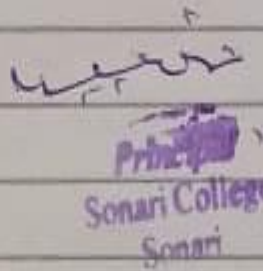 Principal
Sonari College
Sonari